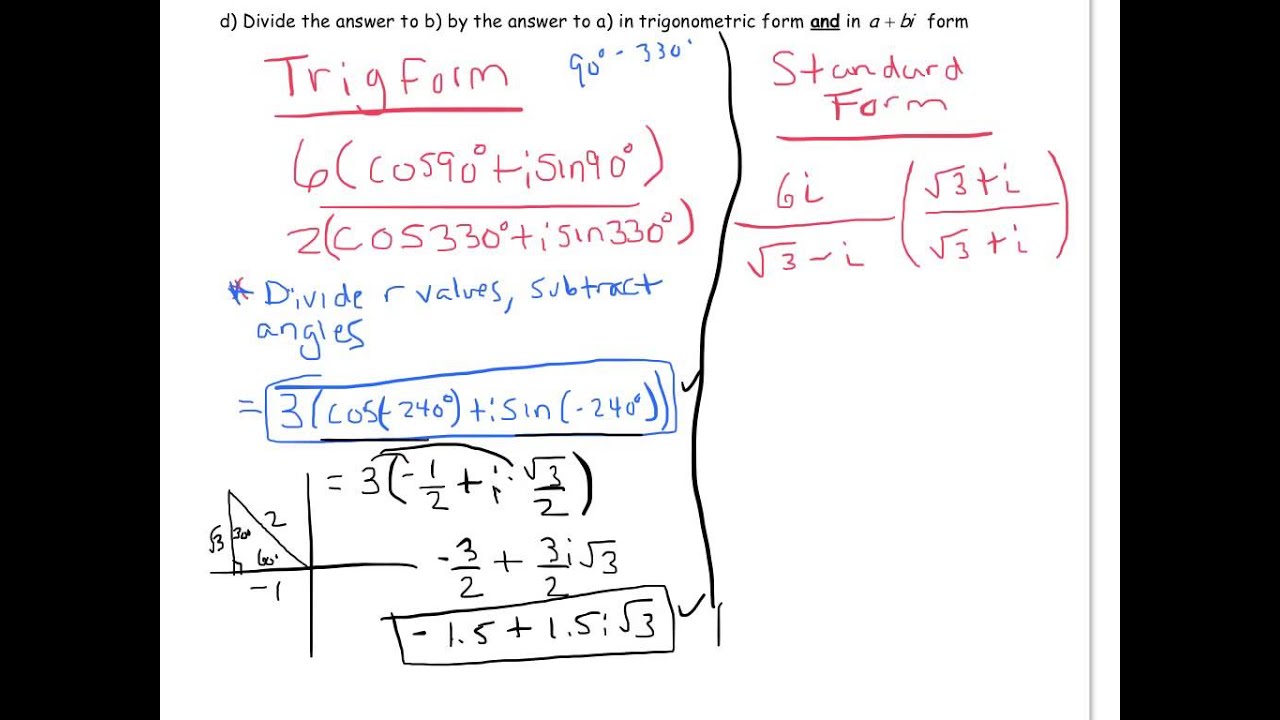 d) Divide the answer to b) by the answer to a) in trigonometric form and in a + bi form
Trig Form
90° - 330°
6(cos90° + i sin90°)
2(cos330° + i sin330°)
* Divide r values, subtract
angles
= 3(cos(-240°) + i sin(-240°)) ✓
= 3(-1/2 + i · √3/2)
√3 30° 2
60°
-1
-3/2 + 3i√3/2
-1.5 + 1.5i√3 ✓
Standard
Form
6i/(√3 - i) ((√3 + i)/(√3 + i))